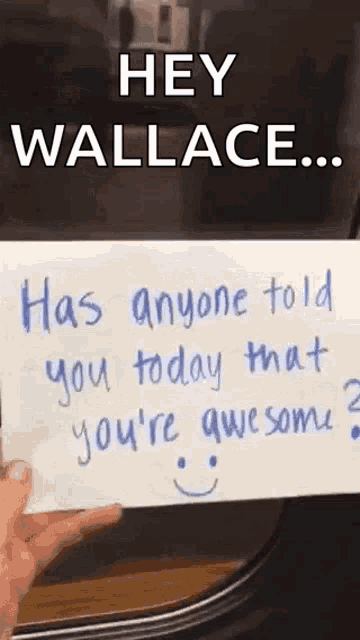 HEY
WALLACE...
Has anyone told
you today that
you're awesome?